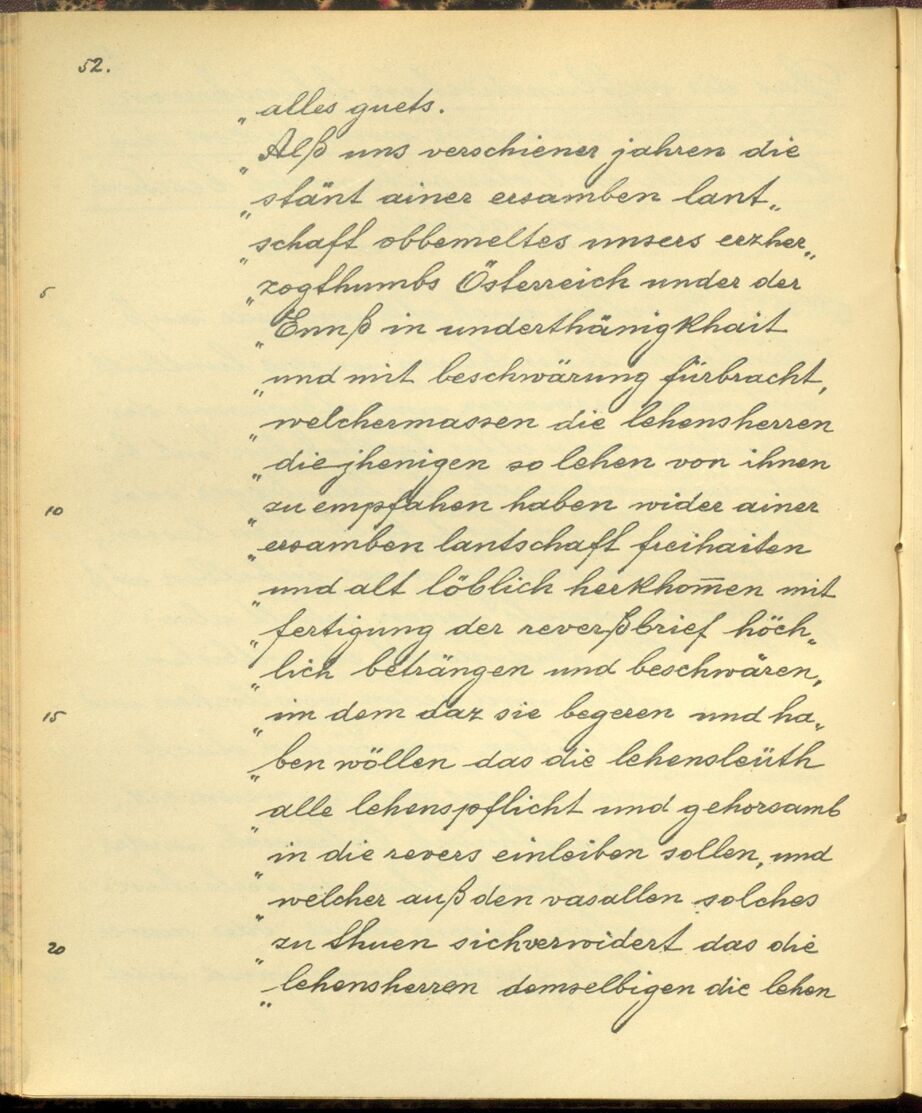 52.
„alles guets.
„Alß uns verschiener jahren die
„stänt ainer ersamben lant„
„schaft obbemeltes unsers erzher„
5 „zogthumbs Österreich under der
„Ennß in underthänigkhait
„und mit beschwärung fürbracht,
„welchermassen die lehensherren
„die jhenigen so lehen von ihnen
10 „zu empfahen haben wider ainer
„ersamben lantschaft freihaiten
„und alt löblich herkhom̄en mit
„fertigung der reverßbrief höch„
„lich beträngen und beschwären,
15 „im dem daz sie begeren und ha„
„ben wöllen das die lehensleüth
„alle lehenspflicht und gehorsamb
„in die revers einleiben sollen, und
„welcher auß den vasallen solches
20 „zu thuen sich verwidert das die
„lehensherren demselbigen die lehen